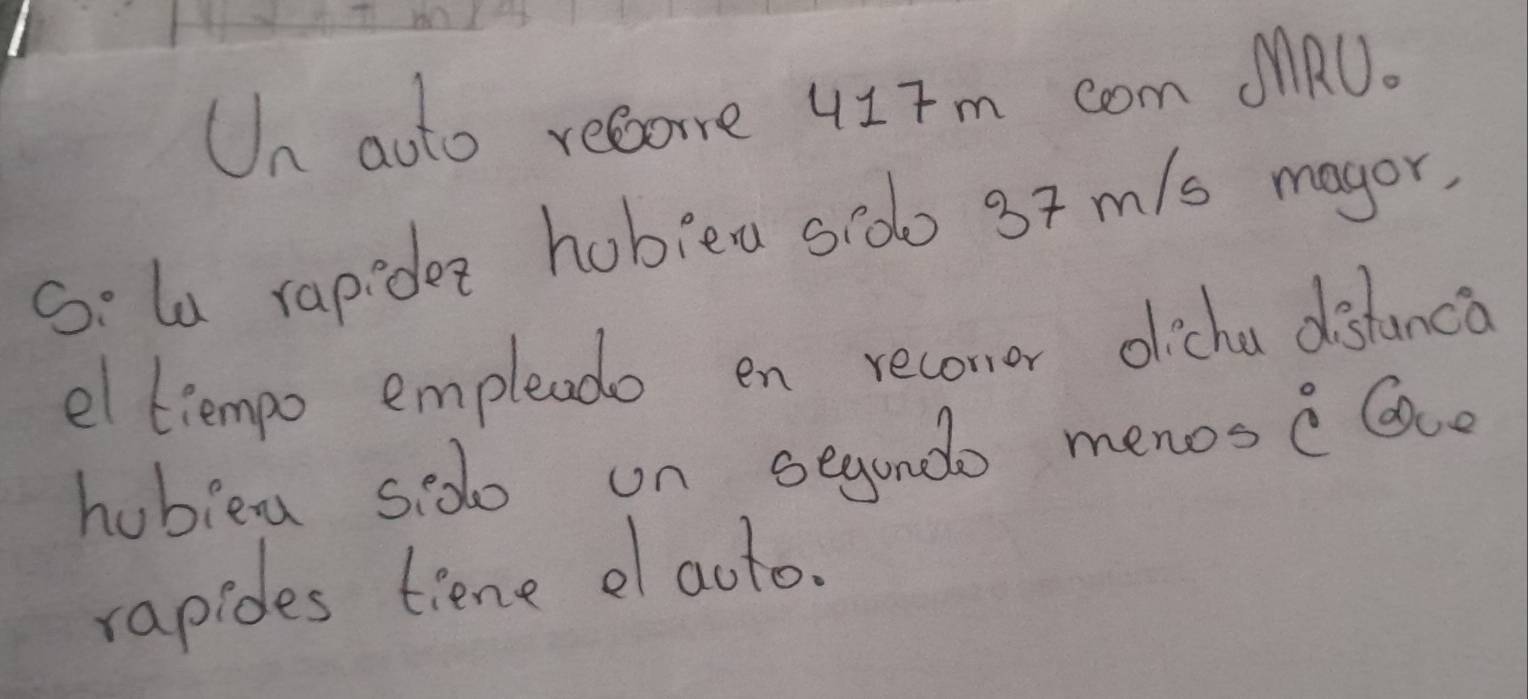 Un auto recorre 417m com MRU.
Si la rapidez hubiera sido 37 m/s mayor,
el tiempo empleado en recorrer dicha distanca
hubiera sido un segundo menos ¿ Que
rapides tiene el auto.